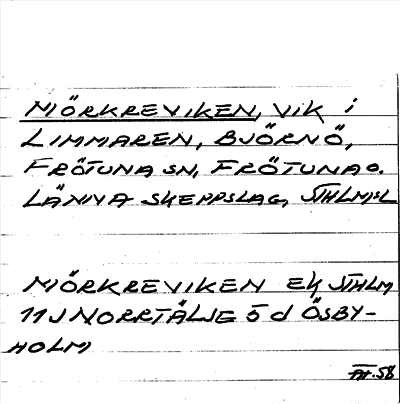 MÖRKREVIKEN, VIK i
LIMMAREN, BJÖRNÖ,
FRÖTUNA SN, FRÖTUNA O.
LÄNNA SKEPPSLAG, STHLMS L
MÖRKREVIKEN EK STHLM
11 J NORRTÄLJE 5 d ÖSBY-
HOLM
.58